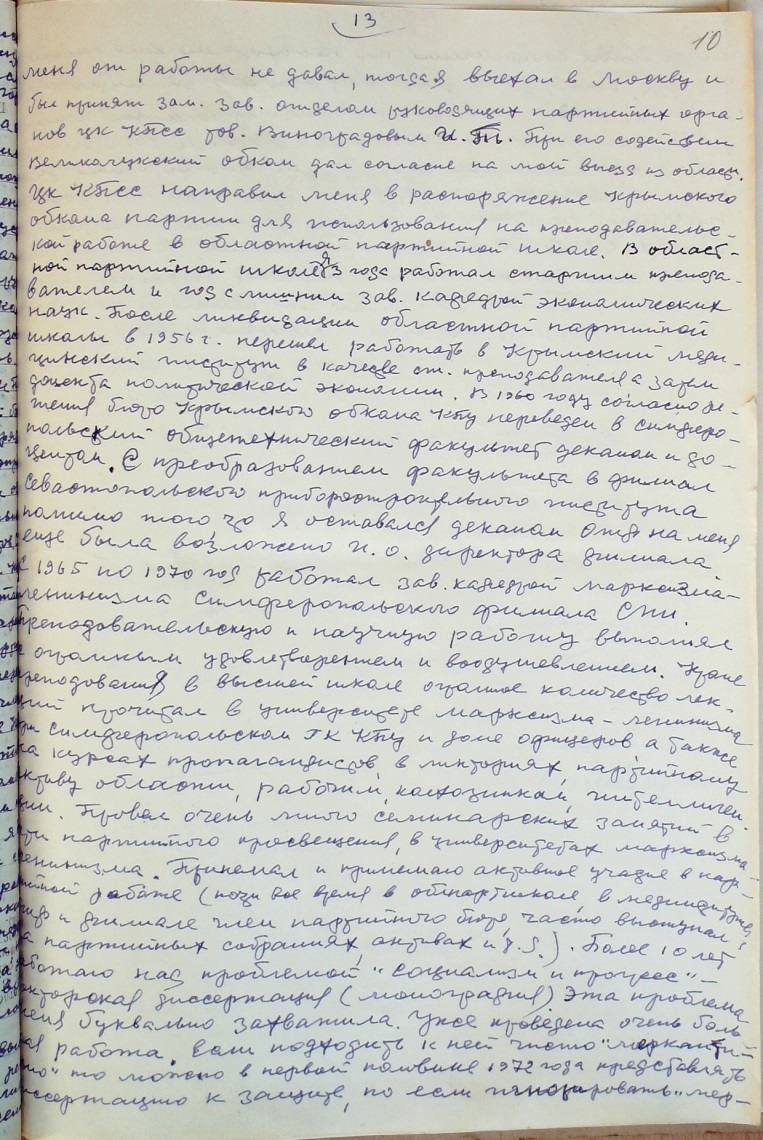 13
10
меня от работы не давал, тогда я выехал в Москву и
был принят зам. зав. отделом руководящих партийных орга-
нов ЦК КПСС тов. Виноградовым И. П. При его содействии
Великолукский обком дал согласие на мой выезд из области.
ЦК КПСС направил меня в распоряжение Крымского
обкома партии для использования на преподавательс-
кой работе в областной партийной школе. В област-
ной партийной школе я 3 года работал старшим препода-
вателем и год с лишним зав. кафедрой экономических
наук. После ликвидации областной партийной
школы в 1956 г. перешел работать в Крымский меди-
цинский институт в качестве ст. преподавателя а затем
доцента политической экономии. В 1960 году согласно ре-
шения бюро Крымского обкома КПУ переведен в Симферо-
польский общетехнический факультет деканом и до-
центом. С преобразованием факультета в филиал
Севастопольского приборостроительного института
помимо того что я оставался деканом ОТФ на меня
еще была возложено и. о. директора филиала.
С 1965 по 1970 год работал зав. кафедрой марксизма-
ленинизма Симферопольского филиала СПИ.
Преподавательскую и научную работу выполнял
с огромным удовлетворением и воодушевлением. Кроме
преподавания в высшей школе огромное количество лек-
ций прочитал в университете марксизма-ленинизма
при Симферопольском ГК КПУ и доме офицеров а также
на курсах пропагандистов, в лекториях, партийному
активу области, рабочим, колхозникам, интеллиген-
ции. Провел очень много семинарских занятий в
сети партийного просвещения, в университетах марксизма-
ленинизма. Принимал и принимаю активное участие в пар-
тийной работе (почти все время в облпартшколе, в мединституте
и филиале член партийного бюро, часто выступал
на партийных собраниях, активах и т. д.). Более 10 лет
работаю над проблемой "Социализм и прогресс" –
докторская диссертация (монография) Эта проблема
меня буквально захватила. Уже проведена очень боль-
шая работа. Если подходить к ней чисто "меркантильно"
то можно в первой половине 1972 года представлять
диссертацию к защите, но если игнорировать "мер-